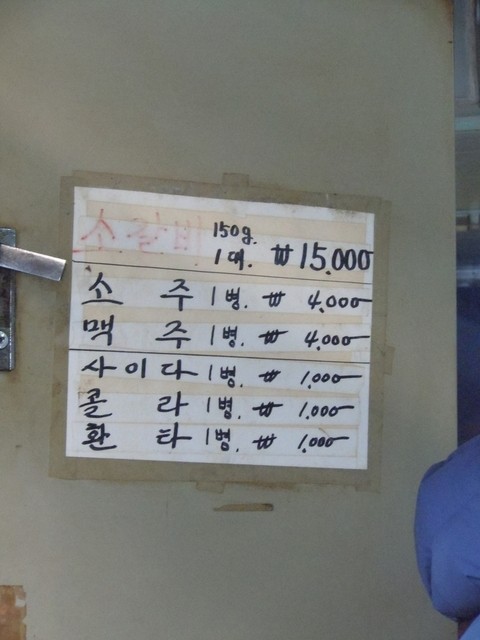 소갈비 150g.
1대. ₩15.000
소 주 1병. ₩ 4.000
맥 주 1병. ₩ 4.000
사이다 1병. ₩ 1.000
콜 라 1병. ₩ 1.000
환 타 1병. ₩ 1.000